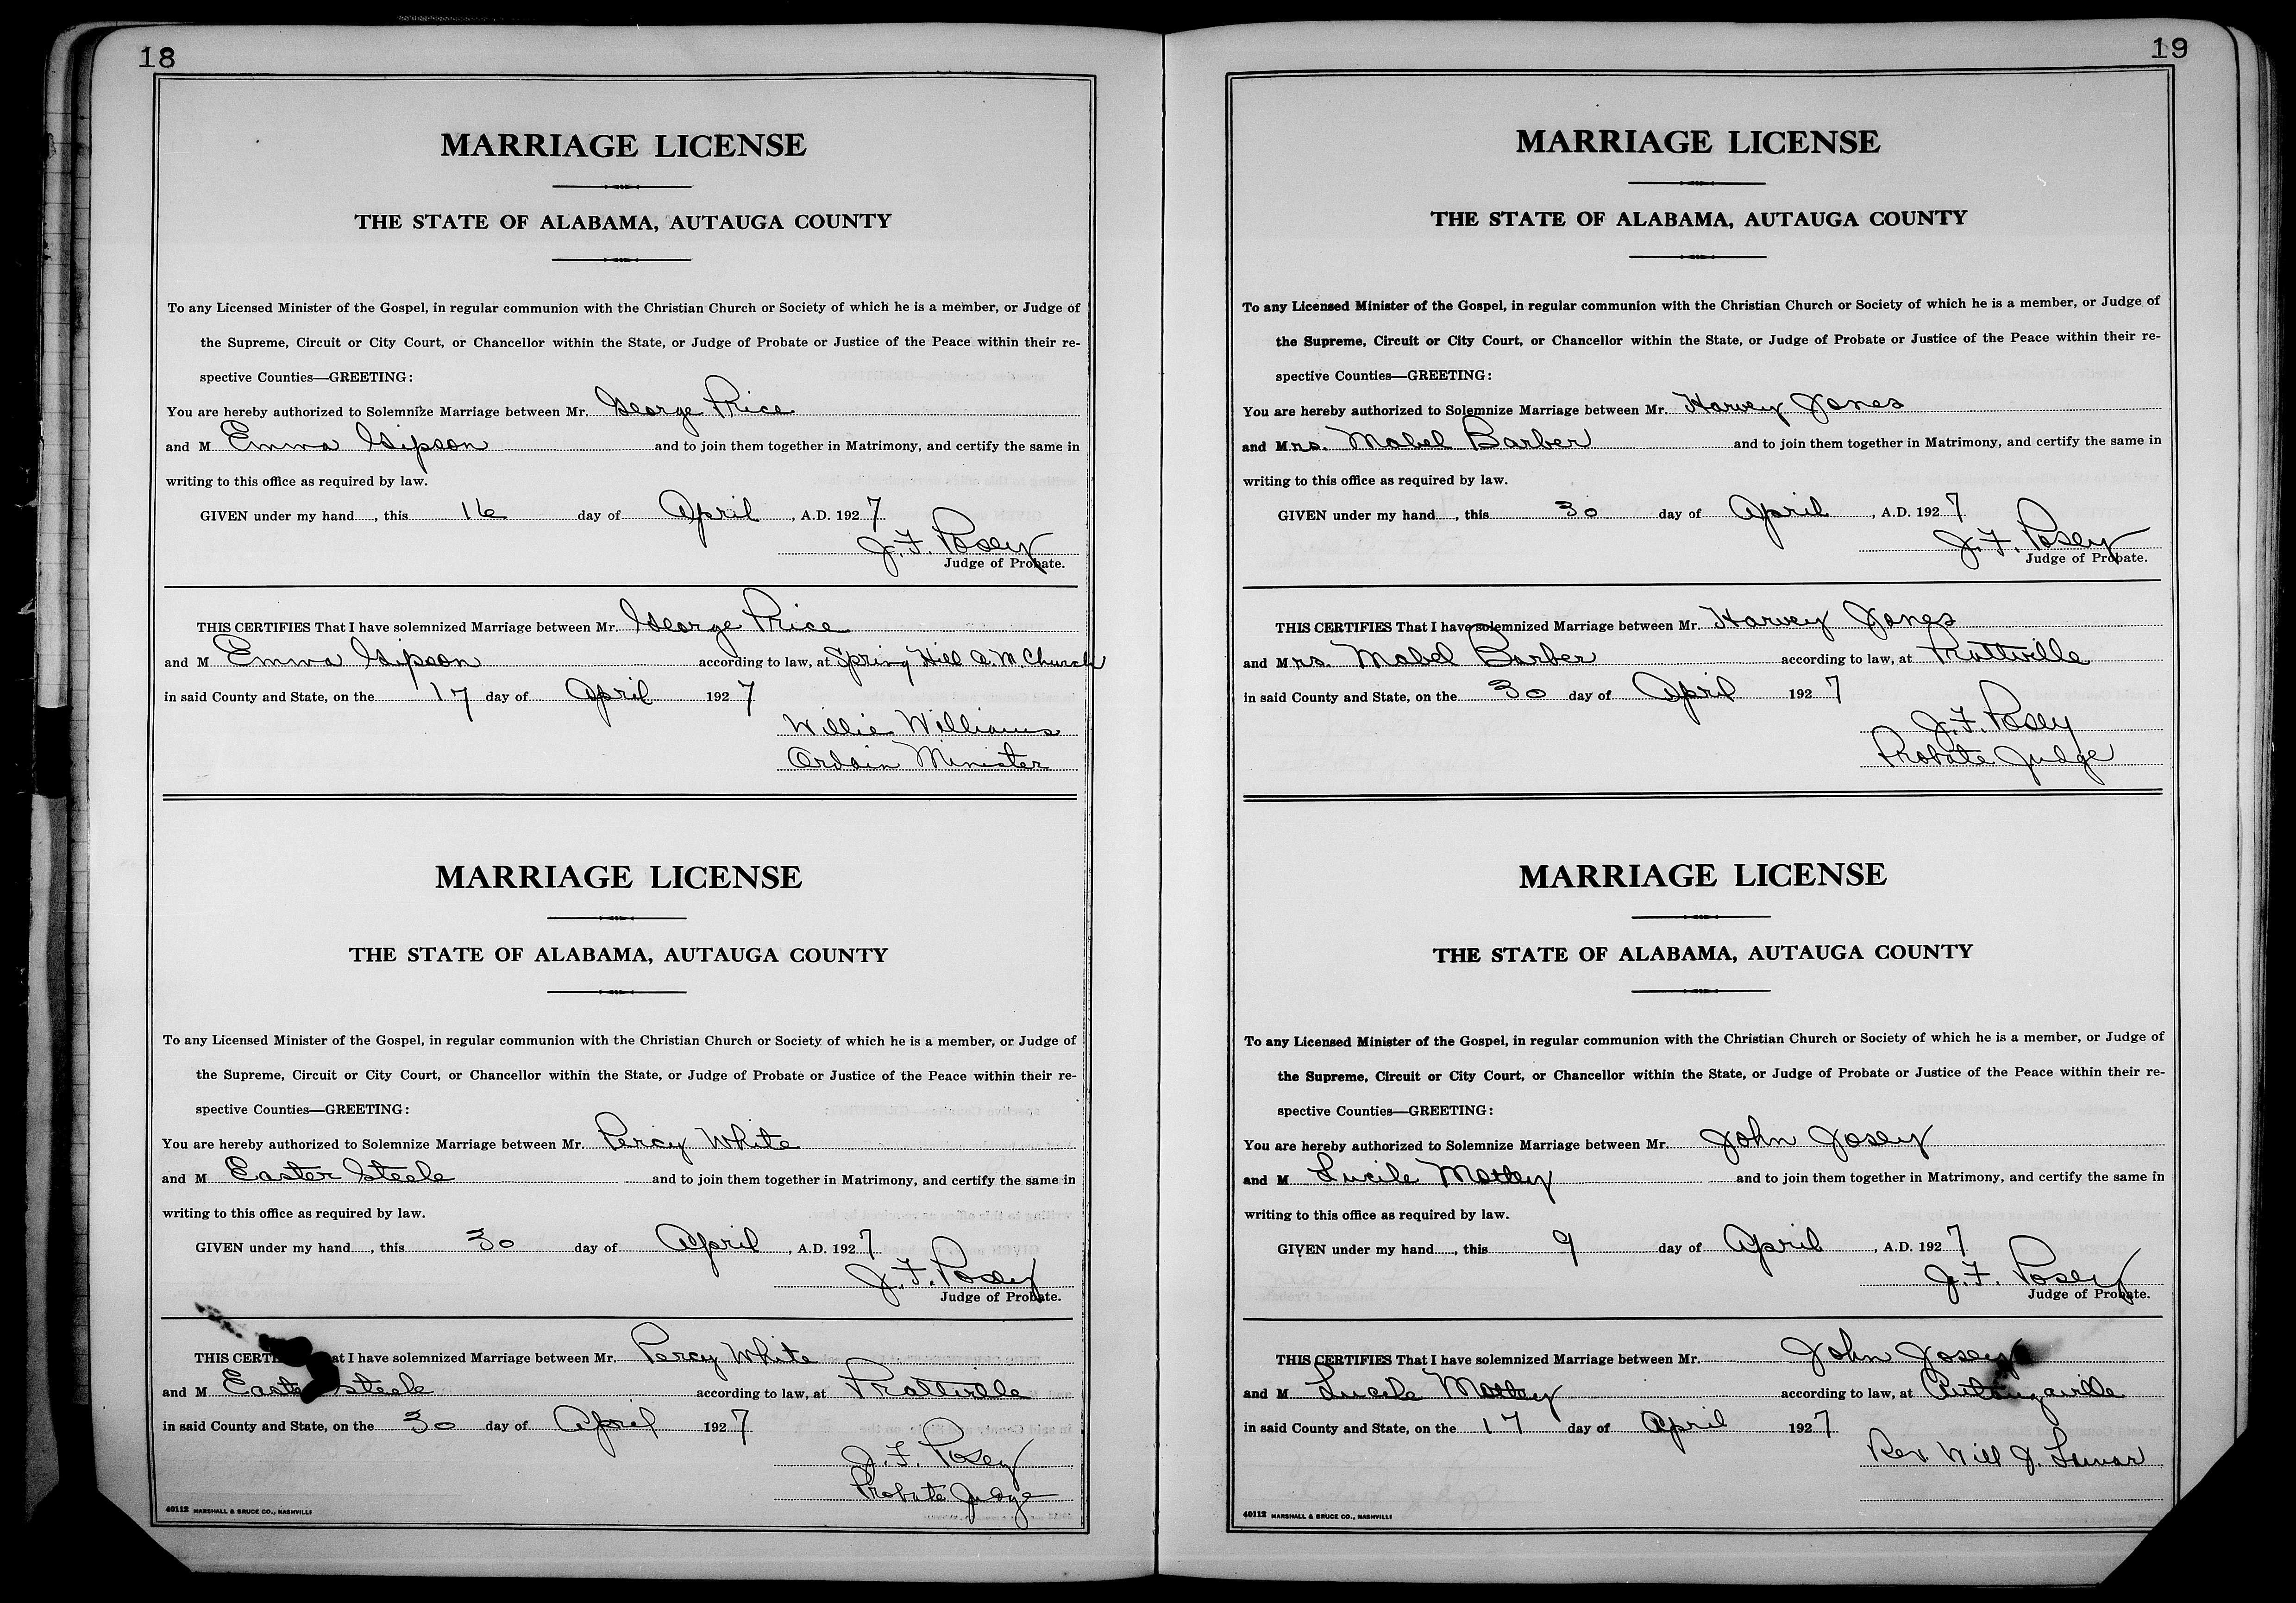 18
MARRIAGE LICENSE
THE STATE OF ALABAMA, AUTAUGA COUNTY
To any Licensed Minister of the Gospel, in regular communion with the Christian Church or Society of which he is a member, or Judge of
the Supreme, Circuit or City Court, or Chancellor within the State, or Judge of Probate or Justice of the Peace within their re-
spective Counties—GREETING:
You are hereby authorized to Solemnize Marriage between Mr. George Price
and M Emma Gipson and to join them together in Matrimony, and certify the same in
writing to this office as required by law.
GIVEN under my hand, this 16 day of April, A.D. 1927
J. F. Posey
Judge of Probate.
THIS CERTIFIES That I have solemnized Marriage between Mr. George Price
and M Emma Gipson according to law, at Spring Hill A. M. Church
in said County and State, on the 17 day of April 1927
Willie Williams
Ordain Minister
MARRIAGE LICENSE
THE STATE OF ALABAMA, AUTAUGA COUNTY
To any Licensed Minister of the Gospel, in regular communion with the Christian Church or Society of which he is a member, or Judge of
the Supreme, Circuit or City Court, or Chancellor within the State, or Judge of Probate or Justice of the Peace within their re-
spective Counties—GREETING:
You are hereby authorized to Solemnize Marriage between Mr. Percy White
and M Easter Steele and to join them together in Matrimony, and certify the same in
writing to this office as required by law.
GIVEN under my hand, this 30 day of April, A.D. 1927
J. F. Posey
Judge of Probate.
THIS CERTI at I have solemnized Marriage between Mr. Percy White
and M Easte Steele according to law, at Prattville
in said County and State, on the 30 day of April 1927
J. F. Posey
Probate Judge
40112 MARSHALL & BRUCE CO., NASHVILLE
19
MARRIAGE LICENSE
THE STATE OF ALABAMA, AUTAUGA COUNTY
To any Licensed Minister of the Gospel, in regular communion with the Christian Church or Society of which he is a member, or Judge of
the Supreme, Circuit or City Court, or Chancellor within the State, or Judge of Probate or Justice of the Peace within their re-
spective Counties—GREETING:
You are hereby authorized to Solemnize Marriage between Mr. Harvey Jones
and Mrs. Mabel Barber and to join them together in Matrimony, and certify the same in
writing to this office as required by law.
GIVEN under my hand, this 30 day of April, A.D. 1927
J. F. Posey
Judge of Probate.
THIS CERTIFIES That I have solemnized Marriage between Mr. Harvey Jones
and Mrs. Mabel Barber according to law, at Prattville
in said County and State, on the 30 day of April 1927
J. F. Posey
Probate Judge
MARRIAGE LICENSE
THE STATE OF ALABAMA, AUTAUGA COUNTY
To any Licensed Minister of the Gospel, in regular communion with the Christian Church or Society of which he is a member, or Judge of
the Supreme, Circuit or City Court, or Chancellor within the State, or Judge of Probate or Justice of the Peace within their re-
spective Counties—GREETING:
You are hereby authorized to Solemnize Marriage between Mr. John Josey
and M Lucile Mottey and to join them together in Matrimony, and certify the same in
writing to this office as required by law.
GIVEN under my hand, this 9 day of April, A.D. 1927
J. F. Posey
Judge of Probate.
THIS CERTIFIES That I have solemnized Marriage between Mr. John Josey
and M Lucile Mottey according to law, at Autaugaville
in said County and State, on the 17 day of April 1927
Rev. Will J. Lamar
40112 MARSHALL & BRUCE CO., NASHVILLE